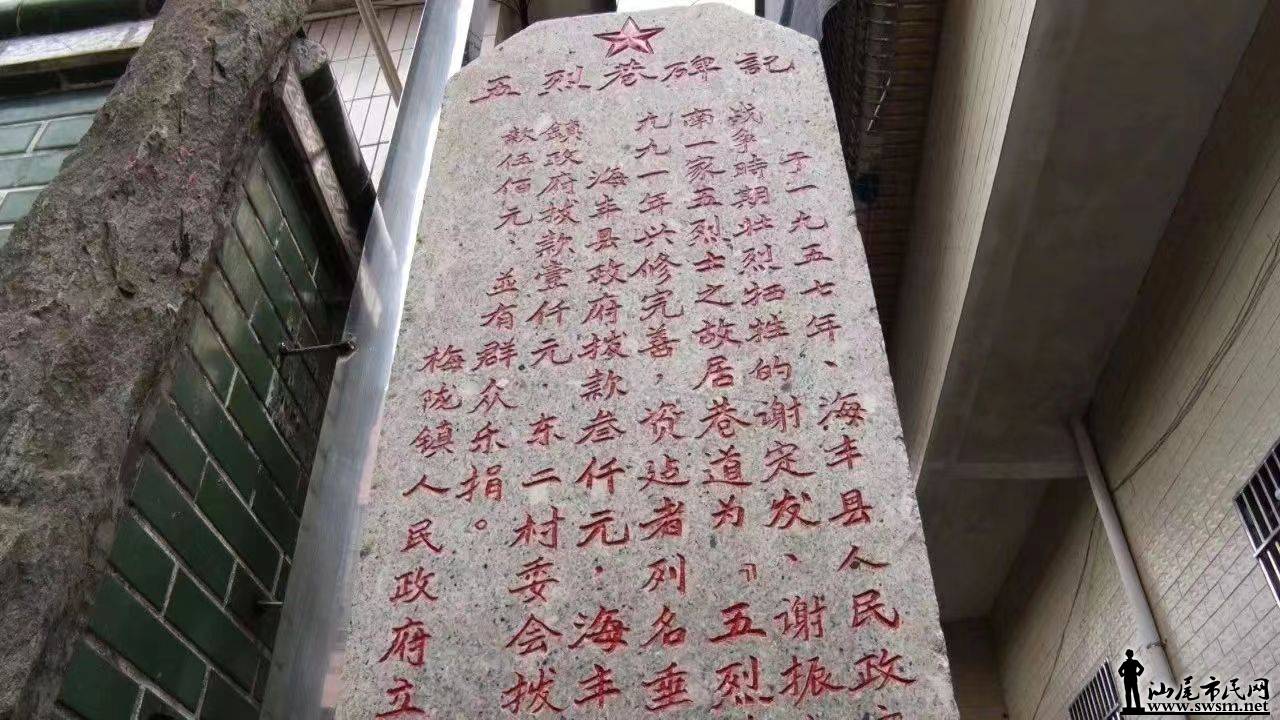 五烈巷碑記
于一九五七年、海丰县人民政
战争時期壮烈牺牲的谢定发、谢振
南一家五烈士之故居巷道为『五烈
九九一年兴修完善,资迠者列名垂
海丰县政府拨款叁仟元.海丰
鎮政府拨款壹仟元 东二村委会拨
款伍佰元:並有群众乐捐。
梅陇鎮人民政府立
汕尾市民网
www.swsm.net